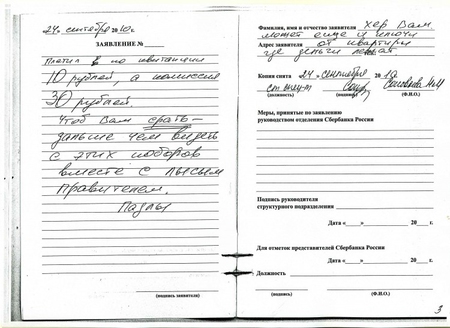 24 сентября 2010 г.
ЗАЯВЛЕНИЕ №
Платил я по квитанции
10 рублей, а комиссия
30 рублей.
Чтоб Вам срать
дальше чем видеть
с этих поборов
вместе с лысым
правителем.
Фамилия, имя и отчество заявителя Хер Вам
может еще и ключи
Адрес заявителя от квартиры
где деньги лежат
Копия снята 24 сентября 2010
(должность) (подпись) (Ф.И.О.)
Меры, принятые по заявлению
руководством отделения Сбербанка России
Подпись руководителя
структурного подразделения
Дата « » 20 г.
Для отметок представителей Сбербанка России
Дата « » 20 г.
Должность
(подпись заявителя)
(подпись) (Ф.И.О.)
3